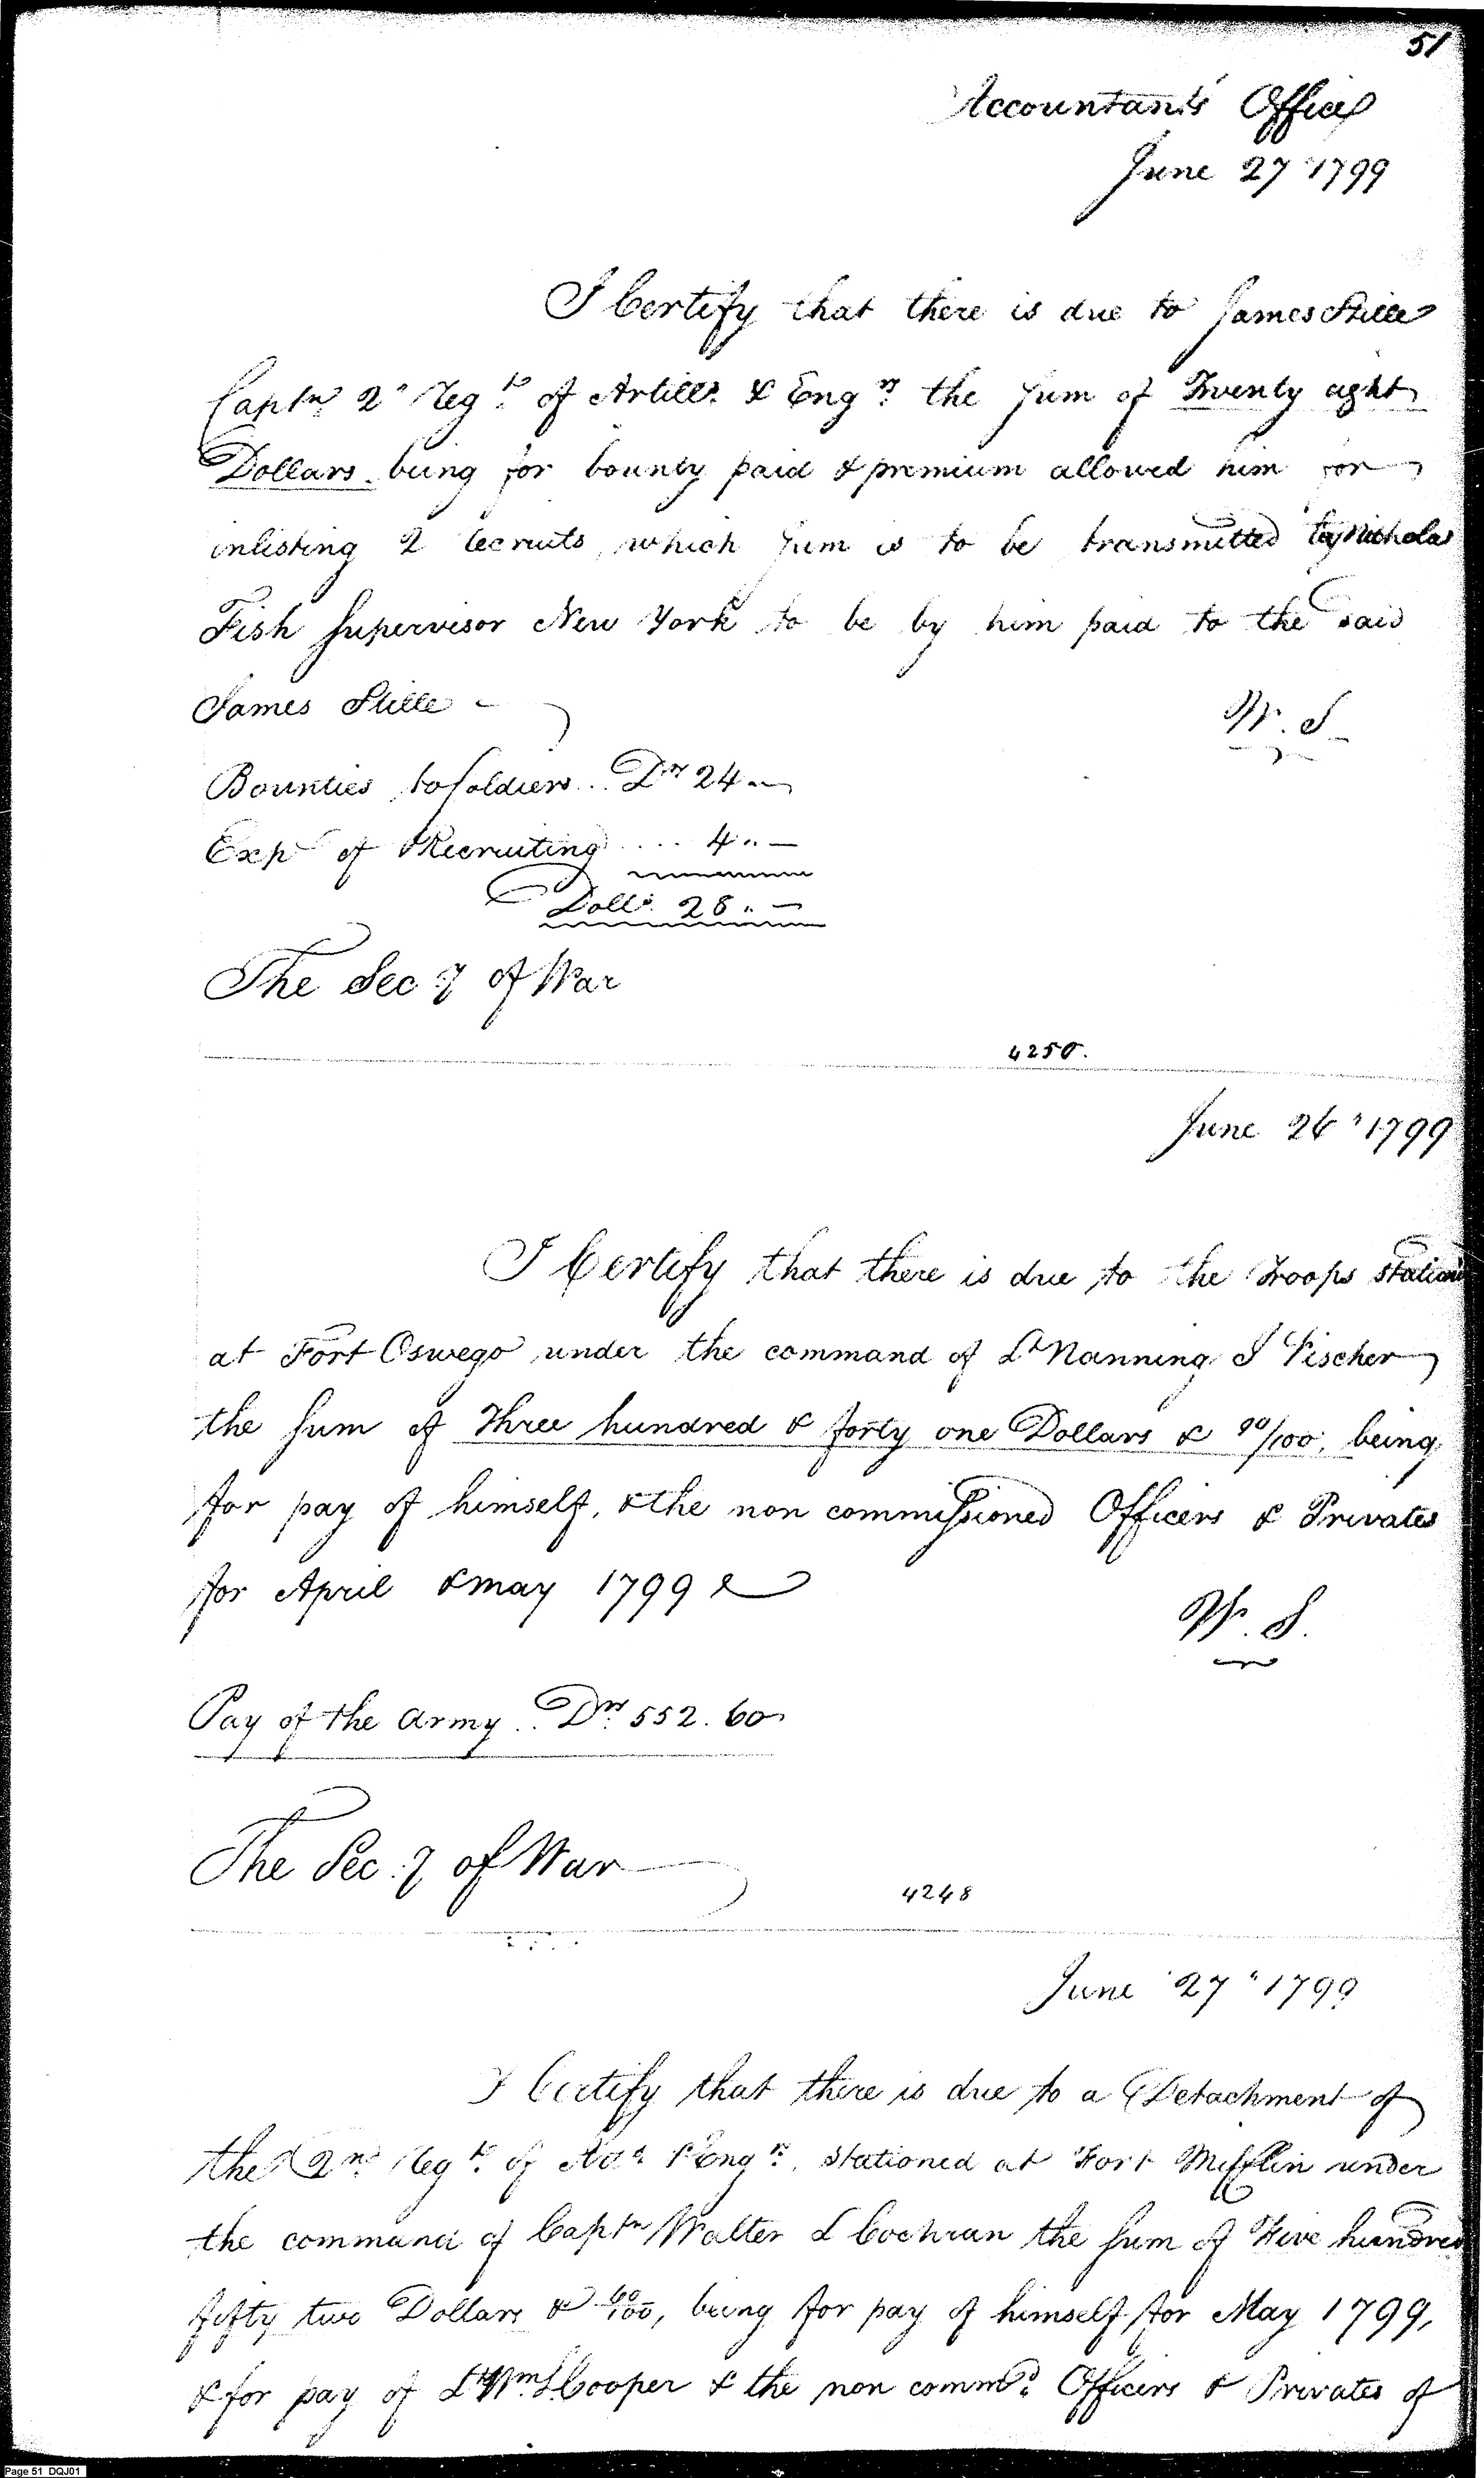 51
Accountant's Office
June 27 " 1799
I Certify that there is due to James Stille
Captn 2d Regt of Artills & Engrs the Sum of Twenty eight
Dollars. being for bounty paid & premium allowed him for
inlisting 2 recruits, which Sum is to be transmitted by Nicholas
Fish Supervisor New York to be by him paid to the said
James Stille
W. S
Bounties to Soldiers .. Drs 24 "—
Exps of Recruiting .... 4 "—
Dolls. 28 "—
The Secy of War
4250.
June 26 " 1799
I Certify that there is due to the Troops station
at Fort Oswego under the command of Lt Nanning J Vischer
the Sum of Three hundred & forty one Dollars & 90/100, being
for pay of himself, & the non commissioned Officers & Privates
for April & may 1799
W. S.
Pay of the Army .. Drs 552. 60
The Secy of War
4248
June 27 " 1799
I Certify that there is due to a Detachment of
the 2nd Regt of Arts & Engrs. stationed at Fort Mifflin under
the command of Captn Walter L Cochran the Sum of Five hundred
fifty two Dollars & 60/100, being for pay of himself for May 1799,
& for pay of Lt Wm L Cooper & the non commd Officers & Privates of
Page 51 DQJ01